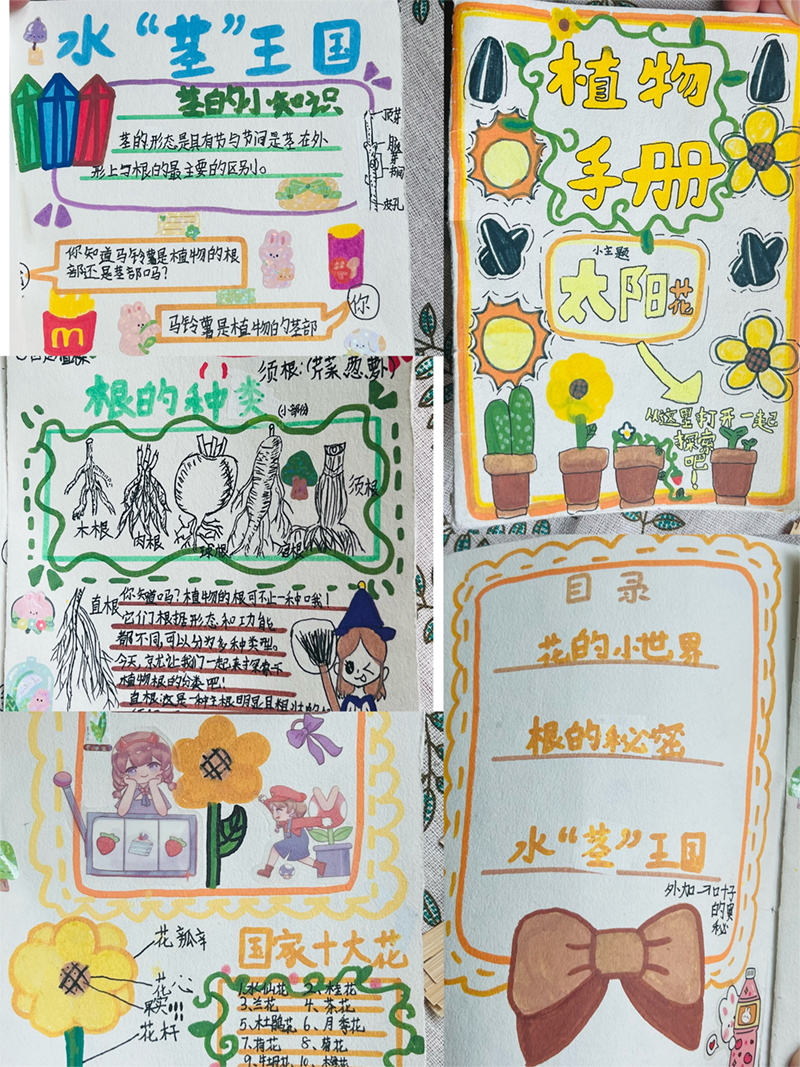 水“茎”王国
茎的小知识
茎的形态是具有节与节间是茎在外
形上与根的最主要的区别。
顶芽
皮孔
你知道马铃薯是植物的根
部还是茎部吗?
你
马铃薯是植物的茎部
须根:(芹菜葱萝卜)
根的种类
(小部分)
木根
肉根
球根
须根
直根
你知道吗?植物的根可不止一种哦!
它们根据形态和功能
都不同,可以分为多种类型。
今天,就让我们一起来探索下
植物根的分类吧!
直根这是一种主根明显且粗壮的
花瓣
花心
果实
花杆
国家十大花
1.水仙花 2、桂花
3.兰花 4、茶花
5、杜鹃花 6、月季花
7、梅花 8、菊花
9、牡丹花 10、
植物
手册
小主题
太阳花
从这里打开一起
探索
吧!
目录
花的小世界
根的秘密
水“茎”王国
外加一切叶子
的奥
秘